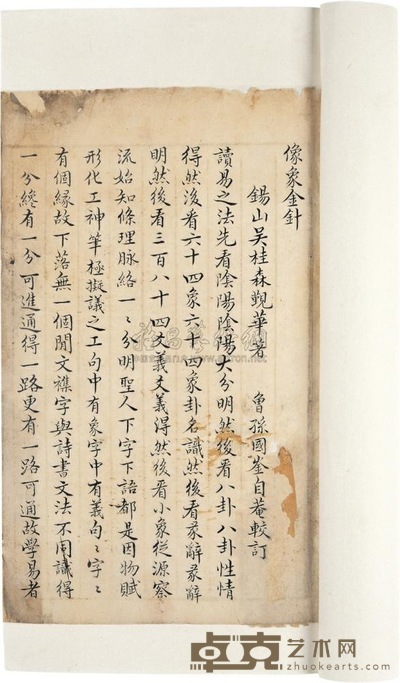 像象金針
錫山吳桂森覲華著 曾孫國崟自菴較訂
讀易之法先看陰陽陰陽大分明然後看八卦八卦性情
得然後看六十四象六十四象卦名識然後看彖辭彖辭
明然後看三百八十四爻義爻義得然後看小象從源察
流始知條理脉絡一〻分明聖人下字下語都是因物賦
形化工神筆極擬議之工句中有象字中有義句〻字〻
有個縁故下落無一個閒文襍字與詩書文法不同識得
一分纔有一分可進通得一路更有一路可通故學易者
卓克艺术网
www.zhuokearts.com